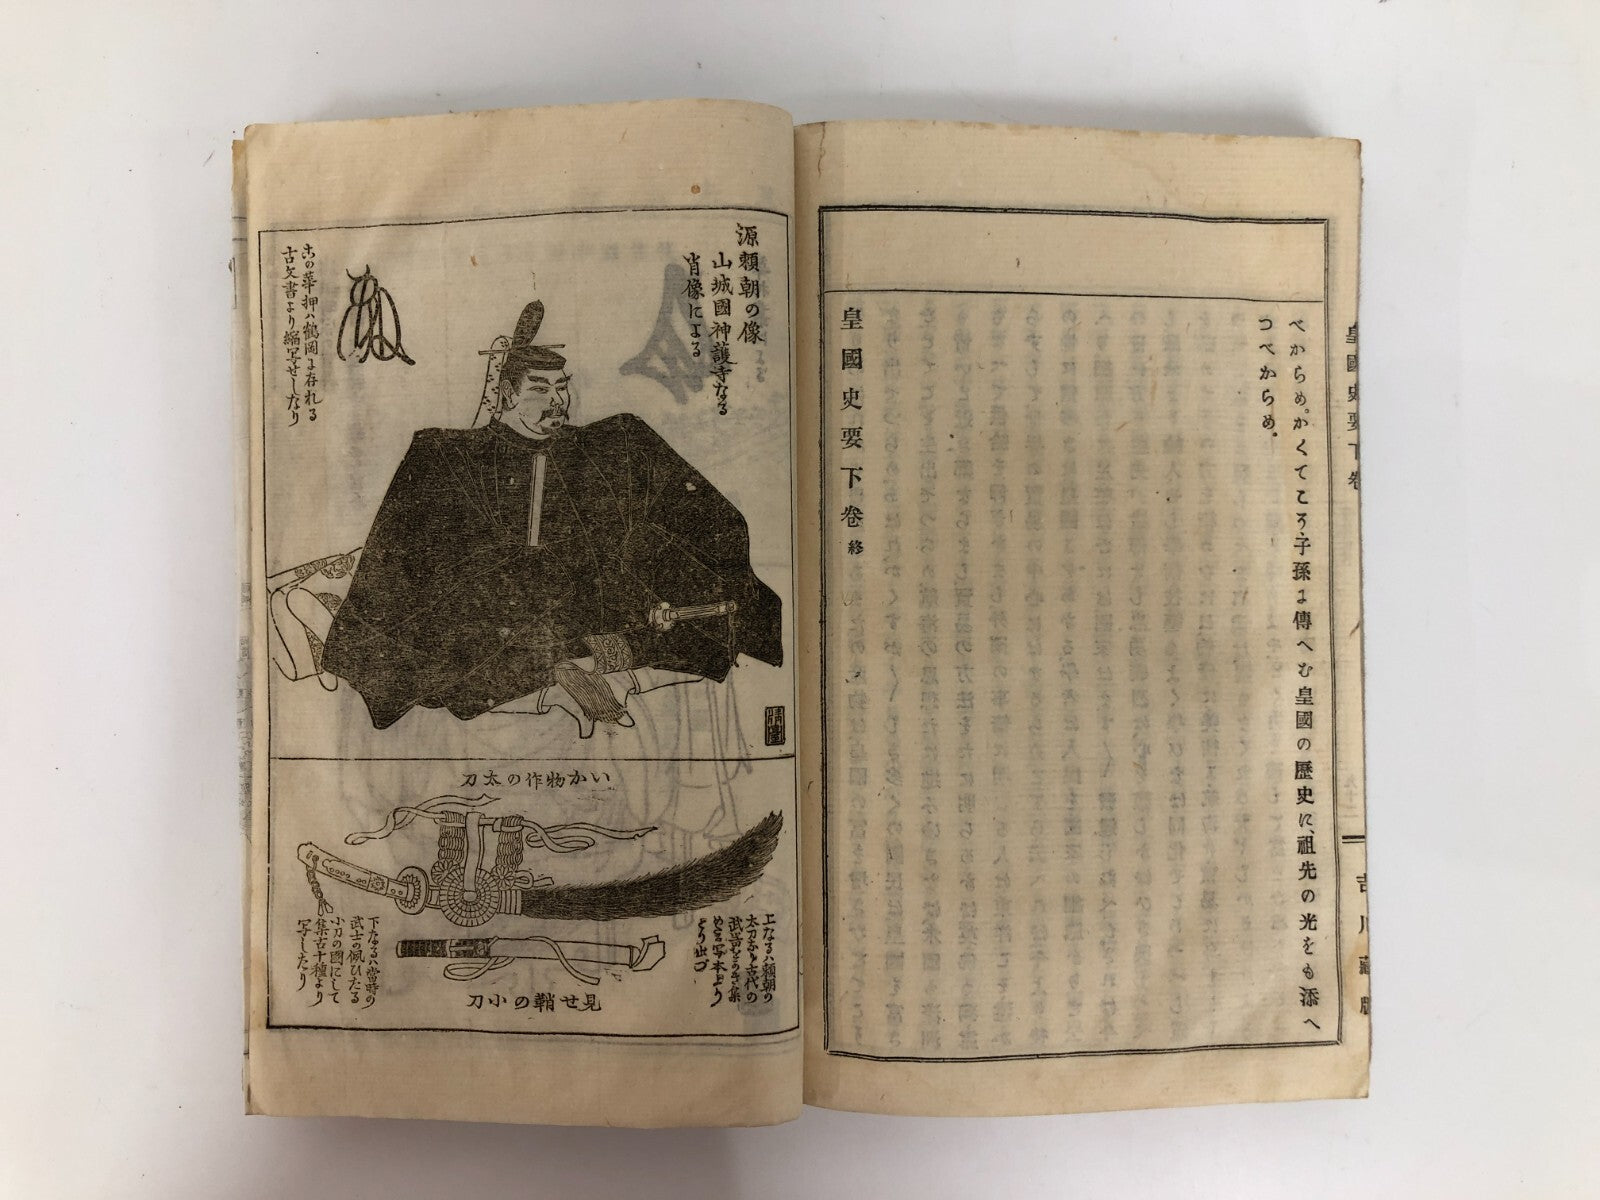 べからめ。かくてころ、子孫に傳へむ皇國の歴史に、祖先の光をも添へ
つべからめ。
皇國史要下卷 終
皇國史要下卷
吉川藏版
源頼朝の像
山城國神護寺なる
肖像による
この華押ハ鶴岡に存れる
古文書より縮写せしなり
いか物作の太刀
上なるハ頼朝の
太刀なり古代の
武器をかき集
めたる写本より
とり出づ
下なるハ當時の
武士の佩ひたる
小刀の圖にして
集古十種より
写したり
見せ鞘の小刀